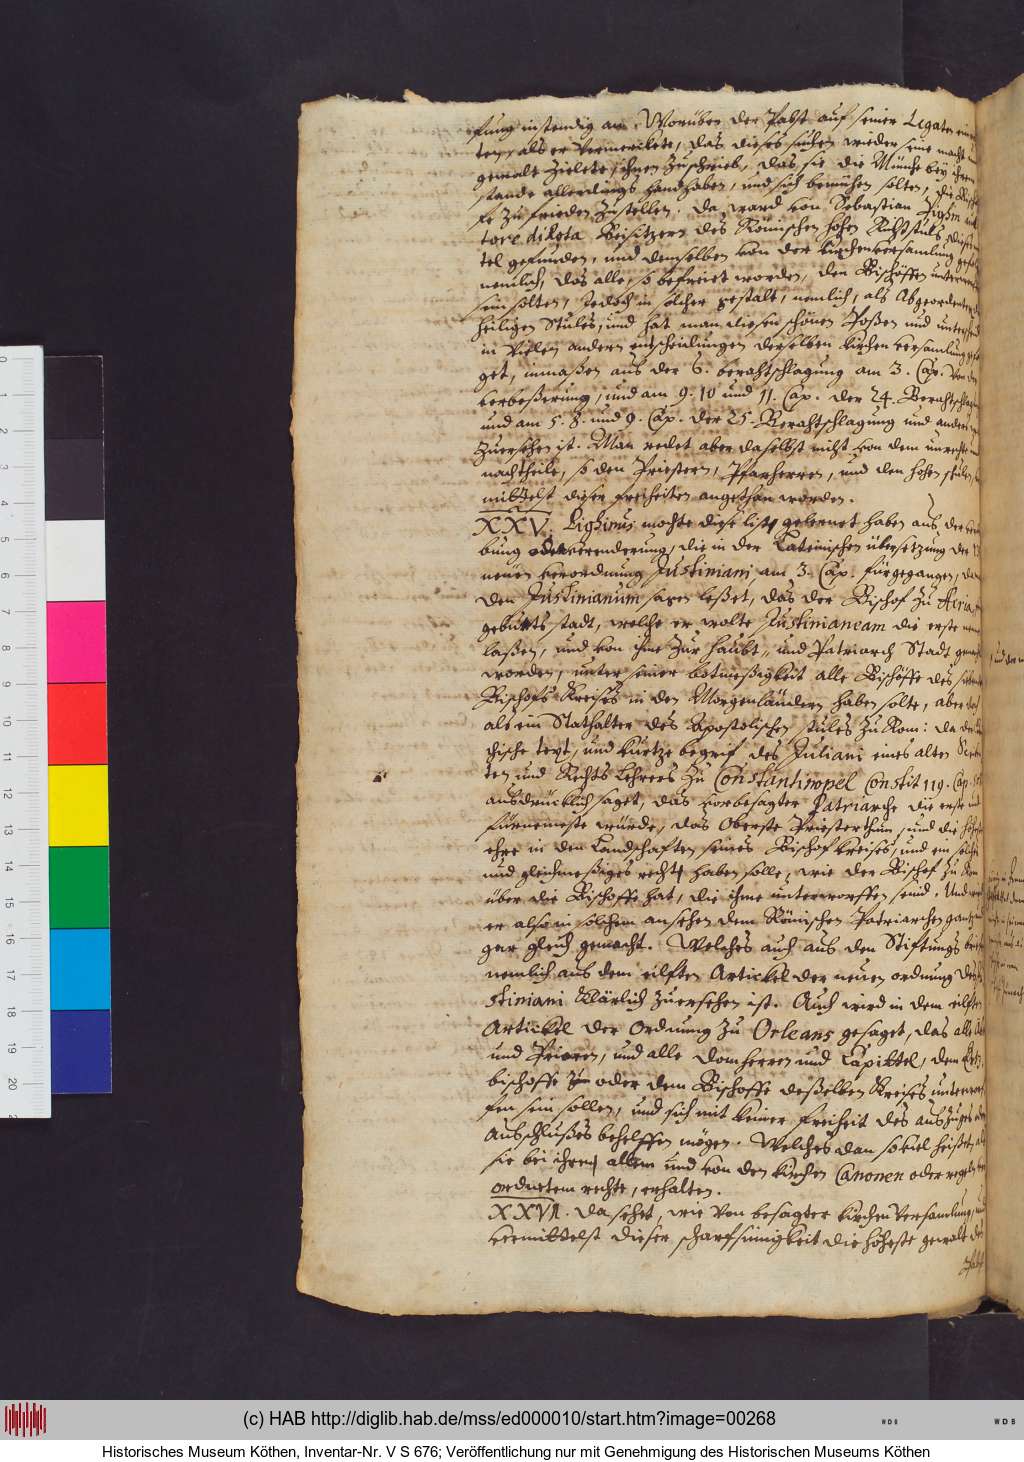 fung instendig an. Worüber der Pabst auf seiner Legaten
ten, als er vermerckete, das dieses sachen wieder seine macht
gewalt zielete, ihnen zuschrieb, das sie die Münche bey ihrem
stande allerdings handhaben, und sich bemühen solten, die
fe zu frieden zu stellen. Da ward von Sebastian Pighin
tore di Rota Beisitzern des Römischen hohen
tel gefunden, und demselben von der kirchenversamlung
nemlich, das alle, so befreiet worden, den Bischöffen
sein solten, Jedoch in solcher gestalt, nemlich, als Abgeordenten
heiligen Stules, und hat man diesen schönen Poßen und
in vielen andern entscheidungen derselben kirchen versamlung
get, inmaßen aus der 6. berahtschlagung am 3. Cap. von der
verbeßerung, und am 9. 10 und 11. Cap. der 24. Berahtschlagung
und am 5. 8. und 9. Cap. der 25. Berahtschlagung und
zuersehen ist. Man redet aber daselbst nicht von dem unrecht
nachtheile, so den Priestern, Pfarherren, und den hohen
mittelst dieser freiheiten angethan worden.
XXV. Pighinus mochte diese list gelernet haben aus der
bung oder verenderung, die in der Lateinischen übersetzung der
neuen verordnung Justiniani am 3. Cap. fürgegangen,
den Justinianum sagen leßet, das der Bischof zu
geburts stadt, welche er wolte Justinianeam die erste
laßen, und von ihme zur haubt, und Patriarch Stadt
worden, unter seiner botmeßigkeit alle Bischöffe des
Bischofs Kreises in den Morgenländern haben solte, aber
als ein Stathalter des Apostolischen stules zu Rom: da
chische text, und kurtze begrif des Juliani eines alten
ten und Rechts Lehrers zu Constantinopel Constit 119. Cap.
ausdrücklich saget, das vorbesagter Patriarche die erste
fürnemeste würde, das Oberste Priesterthum, und die
ehre in den Landschaften seines Bischof kreises, und ein
und gleichmeßiges recht haben solle, wie der Bischof zu
über die Bischoffe hat, die ihme unterworffen seind. Und
er also in solchem ansehen dem Römischen Patriarchen
gar gleich gemacht. Welches auch aus den Stiftungs
nemlich aus dem eilften Artickel der neuen ordnung
stiniani klärlich zuersehen ist. Auch wird in dem eilften
Artickel der Ordnung zu Orleans gesaget, das alle
und Prioren, und alle domherren und Capittel, dem
bischoffe oder dem Bischoffe deßelben Kreises
fen sein sollen, und sich mit keiner freiheit des auszuges
Ausschlußes behelffen mögen. Welches dan soviel heißet,
sie bei ihrem allem und von den kirchen Canonen oder
ordnetem rechte, erhalten.
XXVI. Da sehet, wie von besagter kirchen versamlung,
vermittelst dieser scharfsinnigkeit die höheste gewalt des
(c) HAB http://diglib.hab.de/mss/ed000010/start.htm?image=00268
WDB
WDB
Historisches Museum Köthen, Inventar-Nr. V S 676; Veröffentlichung nur mit Genehmigung des Historischen Museums Köthen